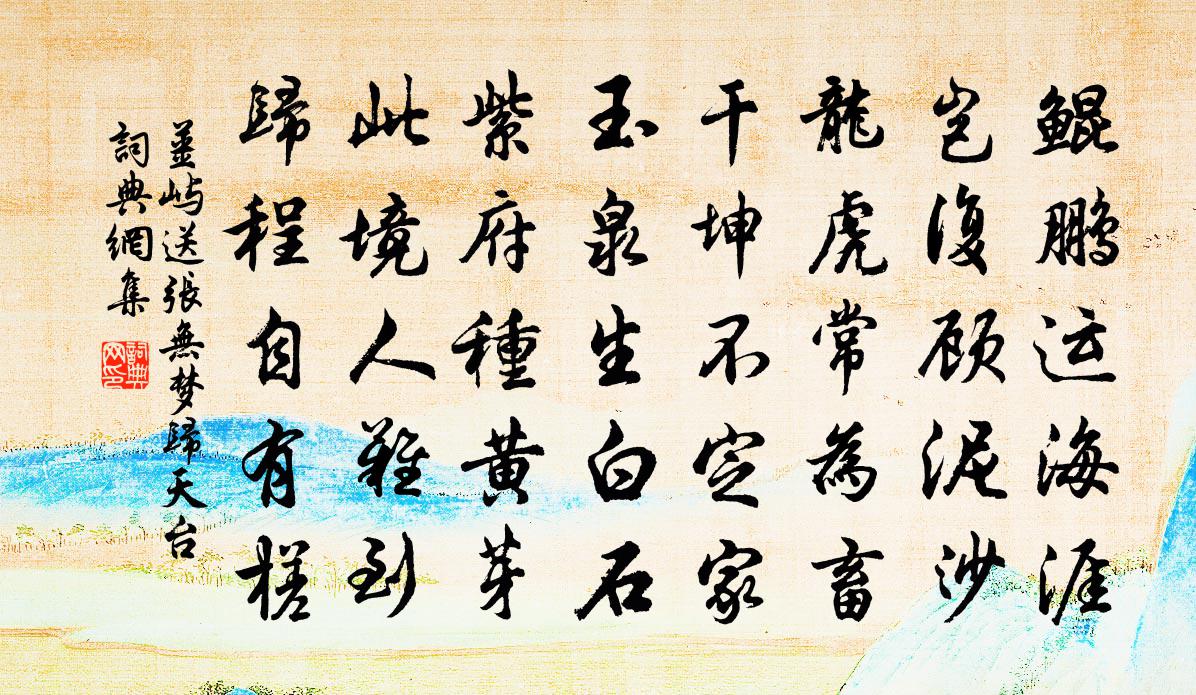 鲲鹏运海涯
岂復顾泥沙
龍虎常為畜
干坤不定家
玉泉生白石
紫府種黄芽
此境人難到
歸程自有槎
姜屿送張無梦歸天台
詞典網集
詞典网印